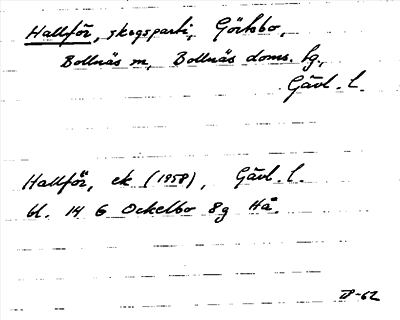 Hallför, skogsparti, Görtsbo,
Bollnäs m, Bollnäs doms. lg.,
Gävl. l.
Hallför, ek (1958), Gävl. l.
bl. 14 G Ockelbo 8g Hå.
-62